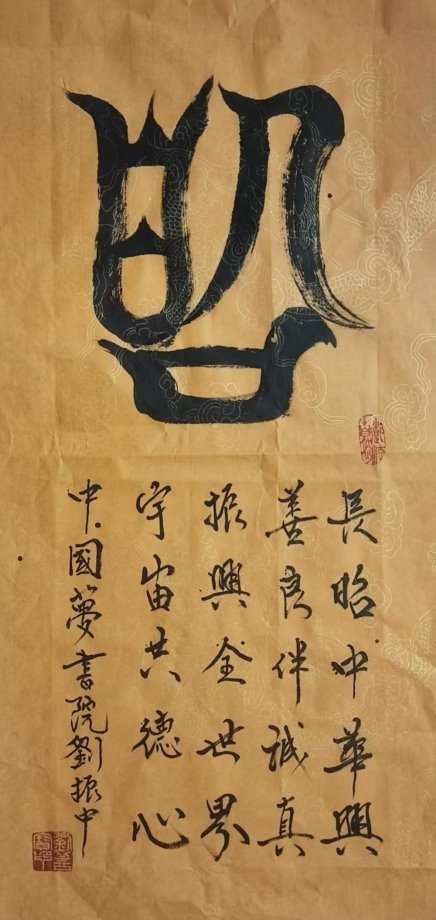 昭
長昭中華興
善良伴誠真
振興全世界
宇宙共德心
中國夢書院劉振中